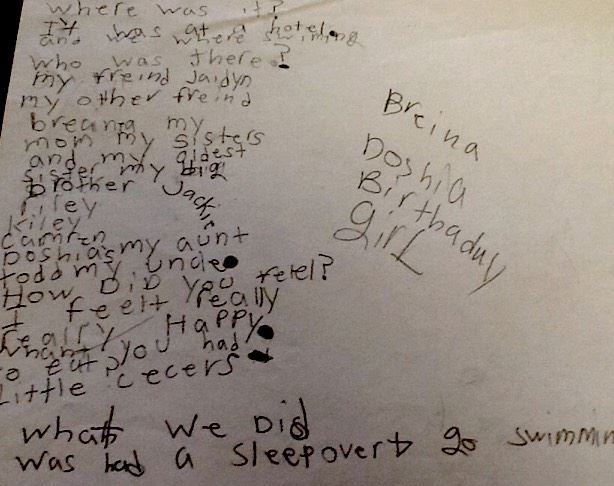 where was it?
It was at a hotel.
and we where swiming
who was there?
my freind Jaidyn
my other freind
breana my
mom my sisters
and my oldest
sister my big
brother Jackie
riley
kiley
camren
Doshias my aunt
todd my uncle
How DiD you feel?
I feelt really
really Happy.
whant you had
to eat?
Little cecers
what We DiD
was had a sleepovert go swimmin
Breina
Doshia
Birthaduy
Girl